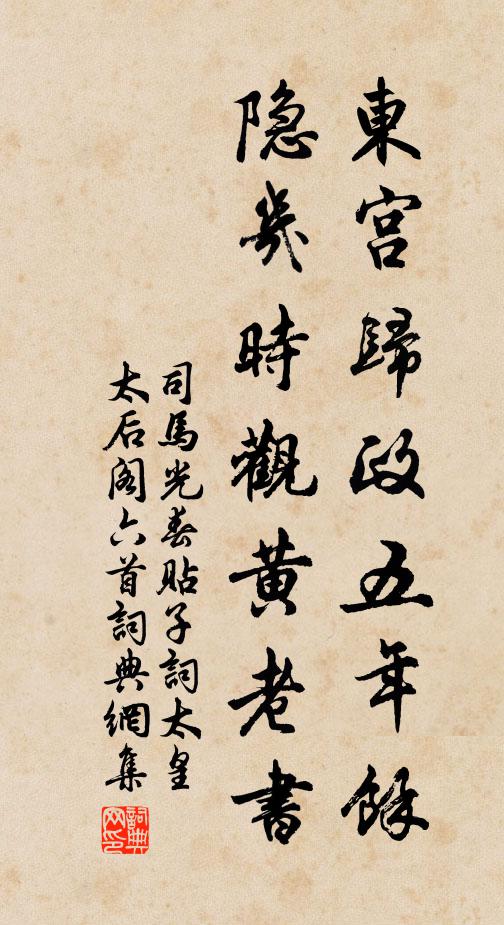 東宮歸政五年餘
隐几時觀黄老書
司馬光春貼子詞太皇
太后阁六首詞典網集
詞典网印